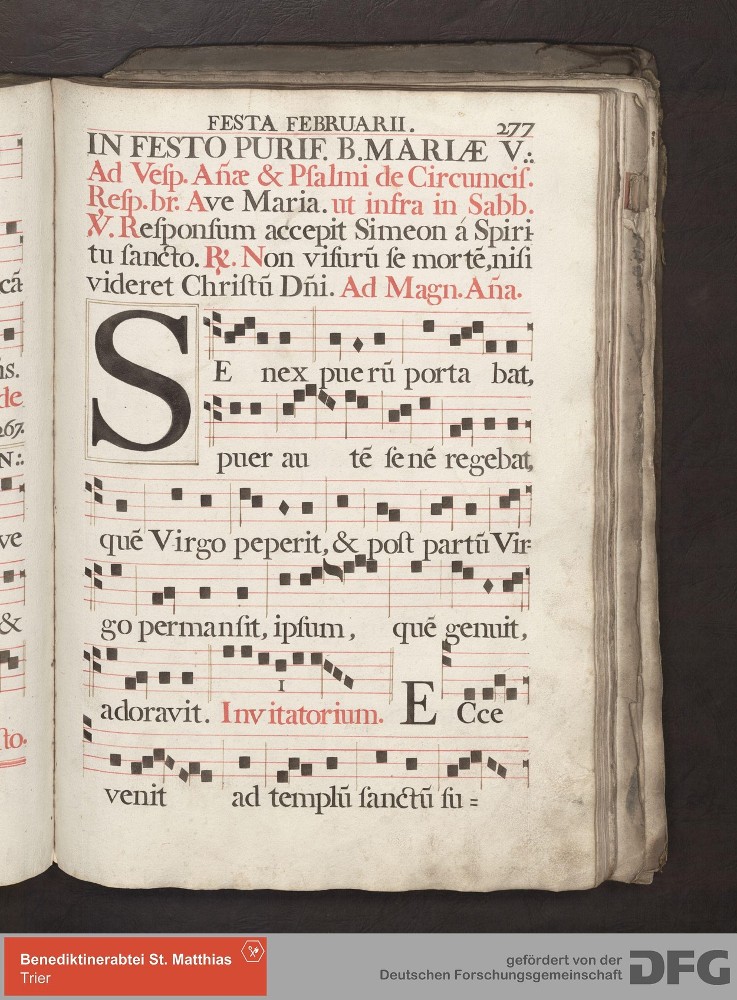 FESTA FEBRUARII. 277
IN FESTO PURIF. B. MARIÆ V:.
Ad Veſp. Añæ & Pſalmi de Circumciſ.
Reſp. br: Ave Maria. ut infra in Sabb.
℣. Reſponſum accepit Simeon á Spiri-
tu ſancto. ℟. Non viſurũ ſe mortẽ, niſi
videret Chriſtũ Dñi. Ad Magn. Aña.
SE nex pue rũ porta bat,
puer au tẽ ſe nẽ regebat,
quẽ Virgo peperit, & poſt partũ Vir-
go permanſit, ipſum, quẽ genuit,
adoravit. Invitatorium. E Cce
1
venit ad templũ ſanctũ ſu =
cã
us.
de
267.
N:.
ve
&
ſto.
Benediktinerabtei St. Matthias
Trier
gefördert von der
Deutschen Forschungsgemeinschaft
DFG